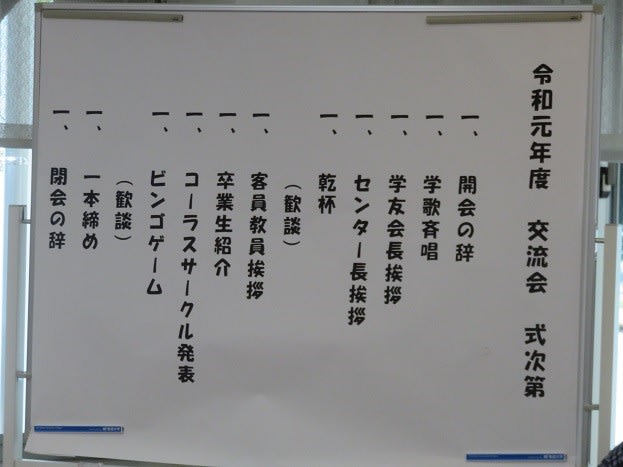 令和元年度 交流会 式次第
一、 開会の辞
一、 学歌斉唱
一、 学友会長挨拶
一、 センター長挨拶
一、 乾杯
（歓談）
一、 客員教員挨拶
一、 卒業生紹介
一、 コーラスサークル発表
一、 ビンゴゲーム
（歓談）
一、 一本締め
一、 閉会の辞